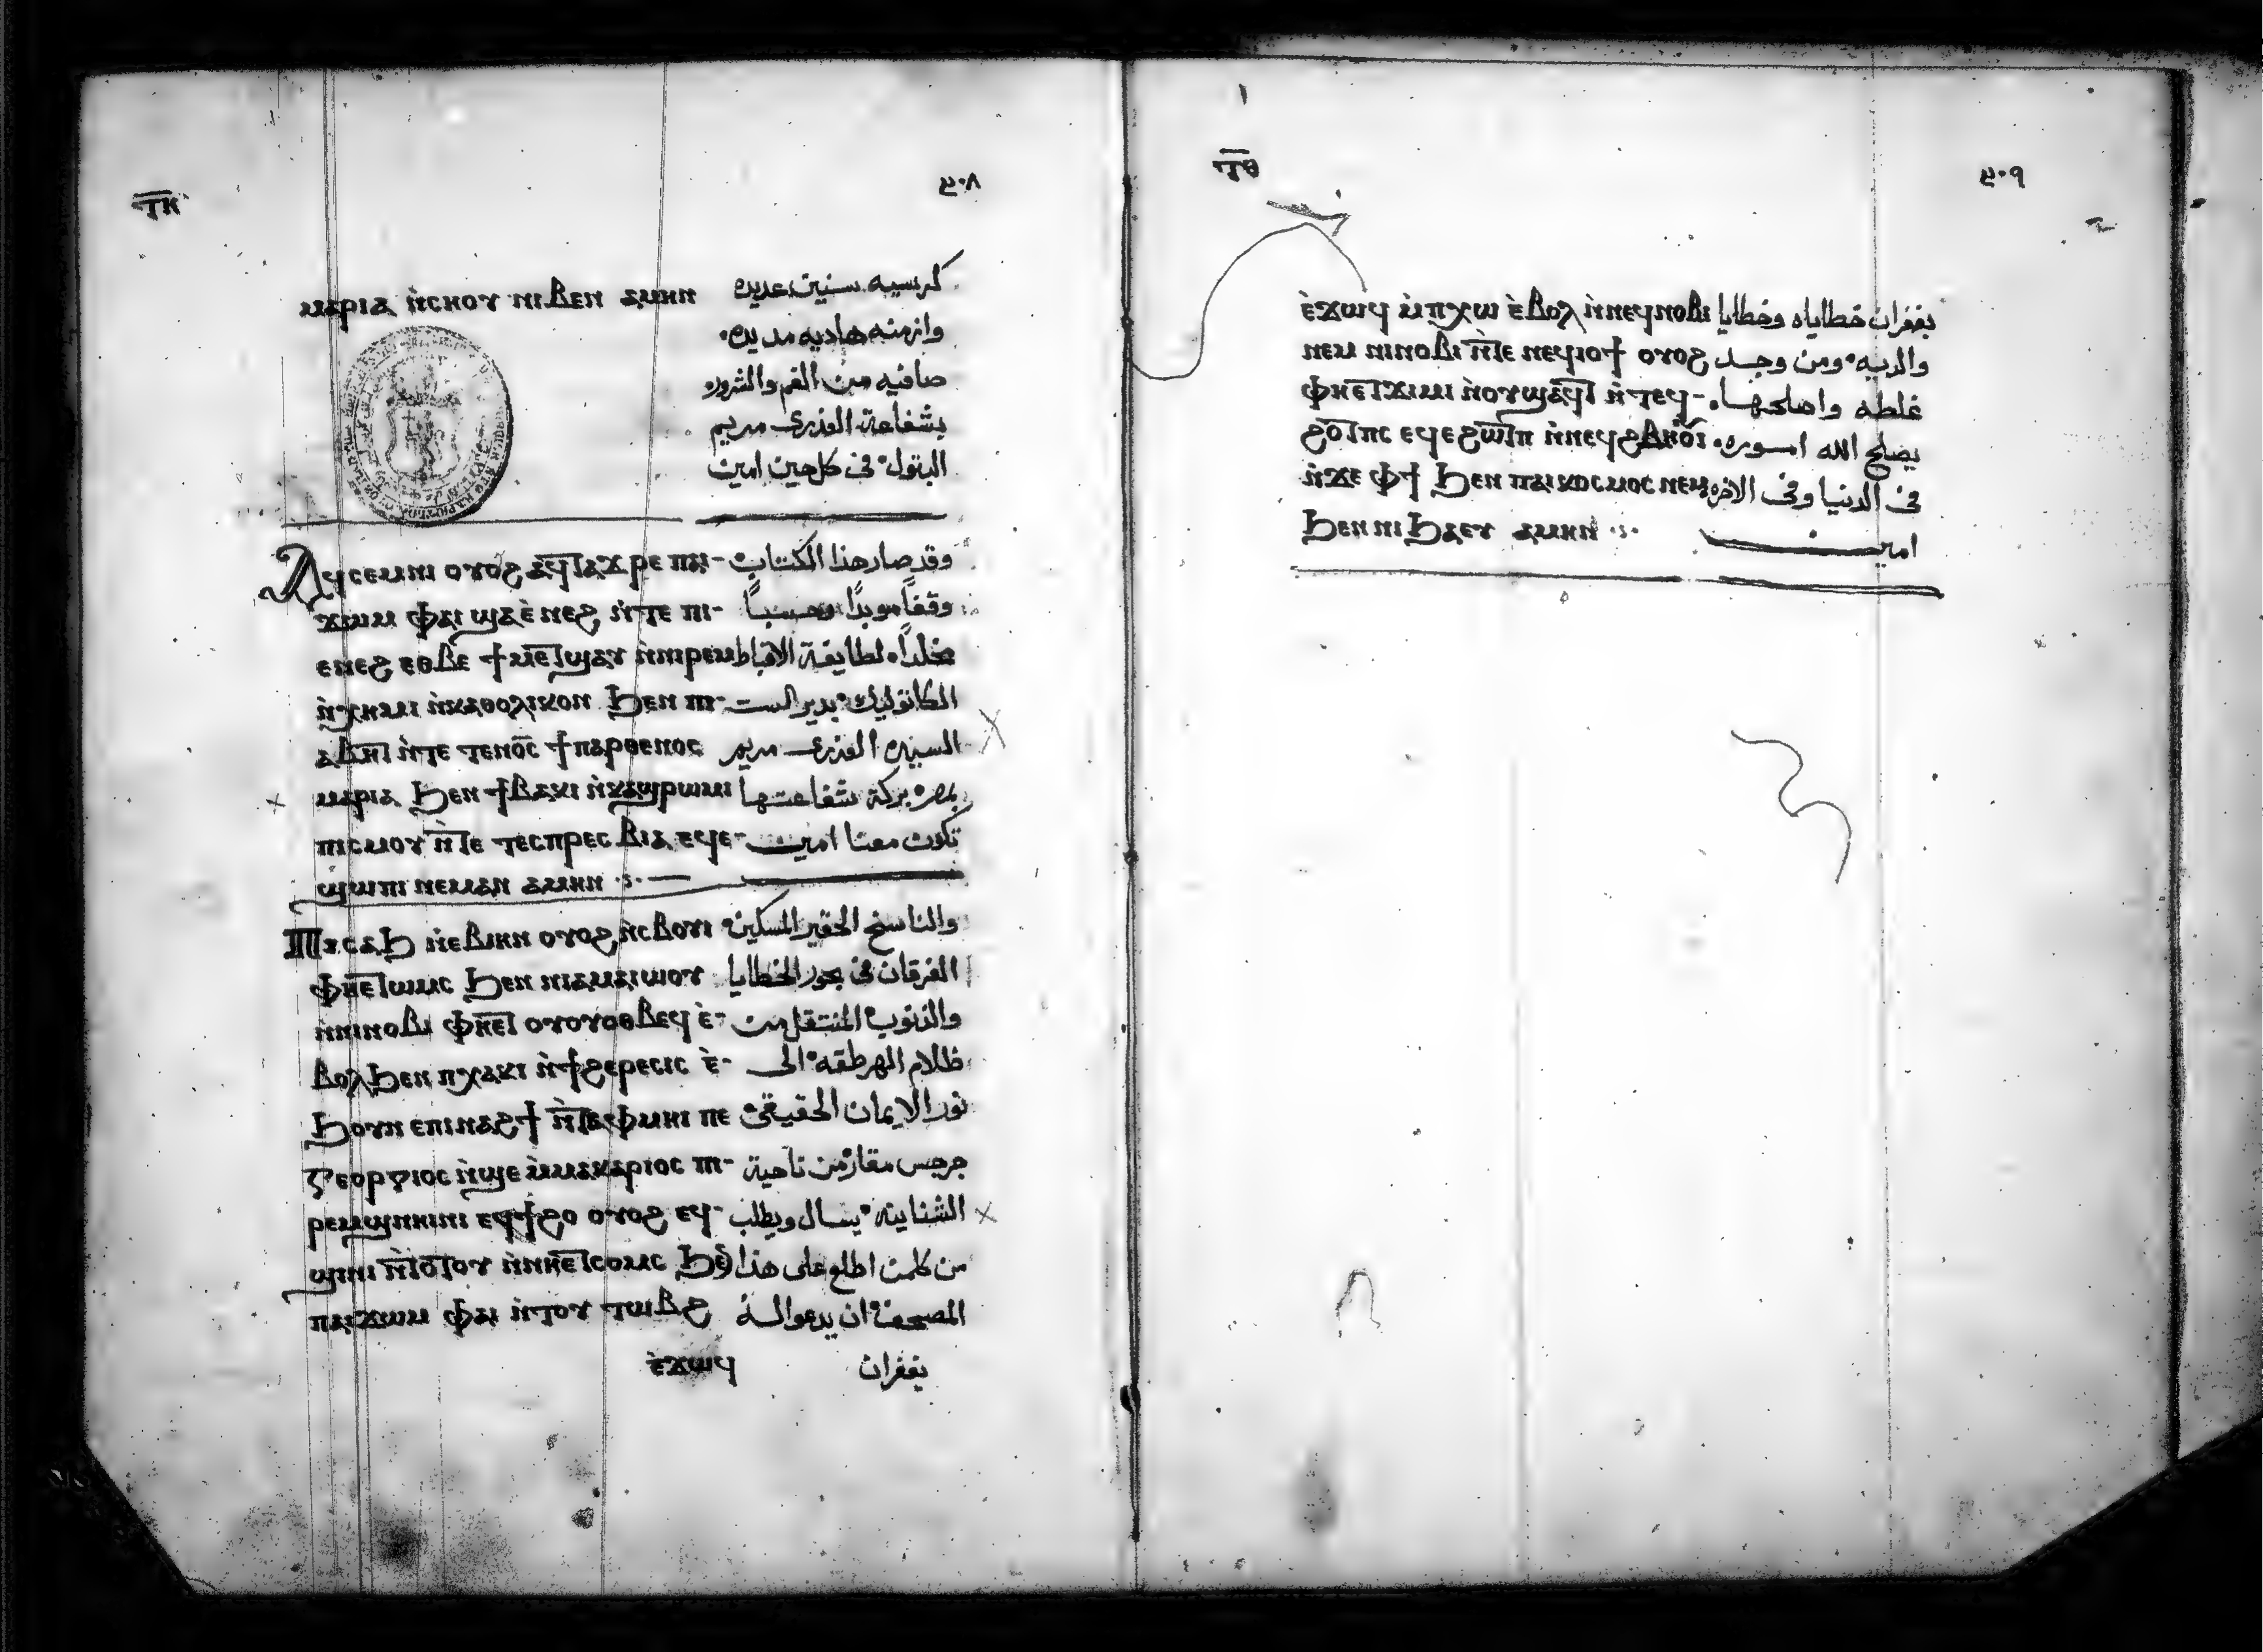 ⲙⲁⲣⲓⲁ ⲛ̀ⲥⲏⲟⲩ ⲛⲓⲃⲉⲛ ⲁⲙⲏⲛ كرسيه سنين عديده
وازمنه هاديه مديده
صافيه من الغم والشرور
بشفاعة العذرى مريم
البتول فى كل حين امين
ⲁϥⲥⲉⲙⲛⲓ ⲟⲩⲟϩ ⲁϥⲧⲁϫⲣⲉ ⲡⲁⲓ- وقد صار هذا الكتاب
ϫⲱⲙ ⲫⲁⲓ ϣⲁⲉ̀ⲛⲉϩ ⲛ̀ⲧⲉ ⲡⲓ- وقفاً موبدًا
ⲉⲛⲉϩ ⲉⲑⲃⲉ ϯⲙⲉⲧϣⲁⲩ ⲛ̀ⲛⲓⲣⲉⲙ مخلدًا لطايفة الاقباط
ⲛ̀ⲭⲏⲙⲓ ⲛ̀ⲕⲁⲑⲟⲗⲓⲕⲟⲛ ϧⲉⲛ ⲡⲓ- الكاتوليك بدير الست
ⲁⲃⲏⲧ ⲛ̀ⲧⲉ ⲧⲉⲛⲟ̅ⲥ̅ ϯⲡⲁⲣⲑⲉⲛⲟⲥ السيده العذرى مريم
ⲙⲁⲣⲓⲁ ϧⲉⲛ ϯⲃⲁⲕⲓ ⲛ̀ⲭⲁϣⲣⲱⲙⲓ بمصر بركة شفاعتها
ⲡⲓⲥⲙⲟⲩ ⲛ̀ⲧⲉ ⲧⲉⲥⲡⲣⲉⲥⲃⲓⲁ ⲉϥⲉ- تكون معنا امين
ϣⲱⲡⲓ ⲛⲉⲙⲁⲛ ⲁⲙⲏⲛ
ⲡⲓⲥⲁϧ ⲛ̀ⲉⲃⲓⲏⲛ ⲟⲩⲟϩ ⲛ̀ⲥⲃⲟⲩⲓ والناسخ الحقير المسكين
ⲫⲏⲉⲧⲱⲙⲥ ϧⲉⲛ ⲛⲓⲁⲙⲁⲓⲱⲟⲩ الغرقان فى بحور الخطايا
ⲛ̀ⲛⲓⲛⲟⲃⲓ ⲫⲏⲉⲧ ⲟⲩⲟⲩⲟⲑⲃⲉϥ ⲉ̀- والذنوب المنتقل من
ⲃⲟⲗϧⲉⲛ ⲡⲭⲁⲕⲓ ⲛ̀ϯϩⲉⲣⲉⲥⲓⲥ ⲉ̀- ظلام الهرطقه الى
ϧⲟⲩⲛ ⲉⲡⲓⲛⲁϩϯ ⲛ̀ⲧⲁⲫⲙⲏⲓ ⲡⲉ نور الايمان الحقيقى
ⲅⲉⲟⲣⲅⲓⲟⲥ ⲛ̀ϣⲉ ⲙ̀ⲙⲁⲕⲁⲣⲓⲟⲥ ⲡⲓ- جرجس مقار من ناحية
ⲣⲉⲙϣⲛⲏⲓⲛⲓ ⲉϥϯϩⲟ ⲟⲩⲟϩ ⲉϥ- الشناينه يسال ويطلب
ϣⲓⲛⲓ ⲛ̀ⲧⲟⲧⲟⲩ ⲛ̀ⲛⲏⲉⲧⲥⲟⲙⲥ ϧⲉⲛ من كلمن اطلع على هذا
ⲡⲁⲓϫⲱⲙ ⲫⲁⲓ ⲛ̀ⲧⲟⲩ ⲧⲱⲃϩ المصحف ان يدعوا له
ⲉ̀ϫⲱϥ بغفران
ⲉ̀ϫⲱϥ ⲙ̀ⲡⲭⲱ ⲉ̀ⲃⲟⲗ ⲛ̀ⲛⲉϥⲛⲟⲃⲓ بغفران خطاياه وخطايا
ⲛⲉⲙ ⲛⲓⲛⲟⲃⲓ ⲛ̀ⲧⲉ ⲛⲉϥⲓⲟϯ ⲟⲩⲟϩ والديه ومن وجد
ⲫⲏⲉⲧϫⲓⲙⲓ ⲛ̀ⲟⲩϣⲁϥⲧ ⲛ̀ⲧⲉϥ- غلطه واصلحها
ϩⲟⲧⲡⲥ ⲉϥⲉϩⲱⲧⲡ ⲛ̀ⲛⲉϥϩⲃⲏⲟⲩⲓ يصلح الله اموره
ⲛ̀ϫⲉ ⲫϯ ϧⲉⲛ ⲡⲁⲓⲕⲟⲥⲙⲟⲥ ⲛⲉⲙ فى الدنيا وفى الاخره
ϧⲉⲛ ⲡⲓϧⲁⲉⲩ ⲁⲙⲏⲛ امين